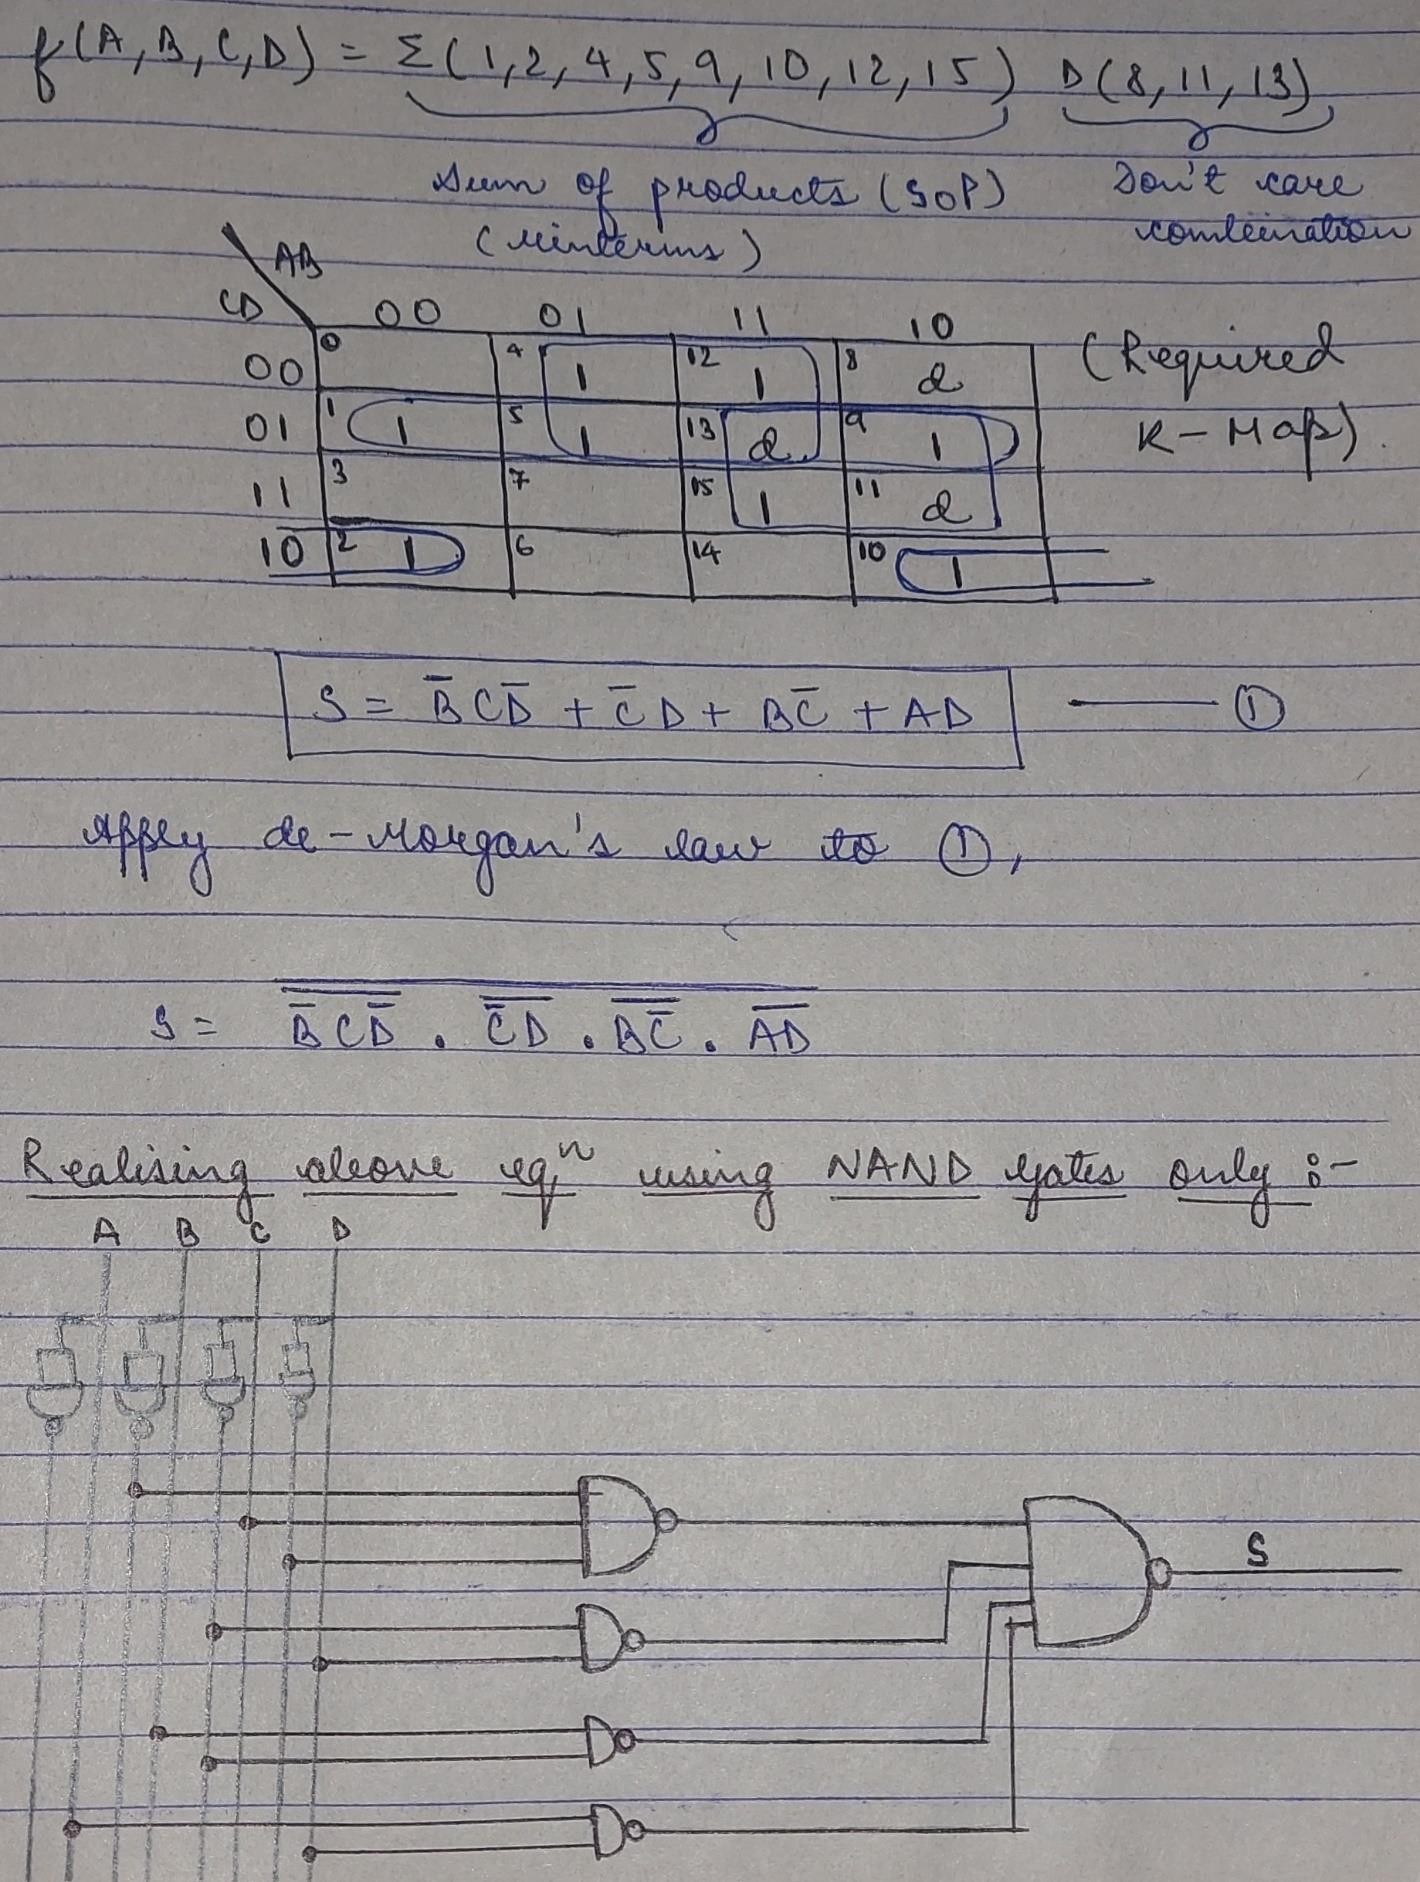 f(A,B,C,D) = Σ(1,2,4,5,9,10,12,15) D(8,11,13)
Sum of products (SOP) Don't care
(Minterms) combination
AB
CD 00 01 11 10
00 0 4 1 12 1 8 d (Required
01 1 1 5 1 13 d 9 1 K-Map).
11 3 7 15 1 11 d
10 2 1 6 14 10 1
S = B̅CD̅ + C̅D + BC̅ + AD ——— ①
Apply de-Morgan's law to ①,
S = \overline{\overline{B̅CD̅} . \overline{C̅D} . \overline{BC̅} . \overline{AD}}
Realising above eqⁿ using NAND gates only :-
A B C D
S